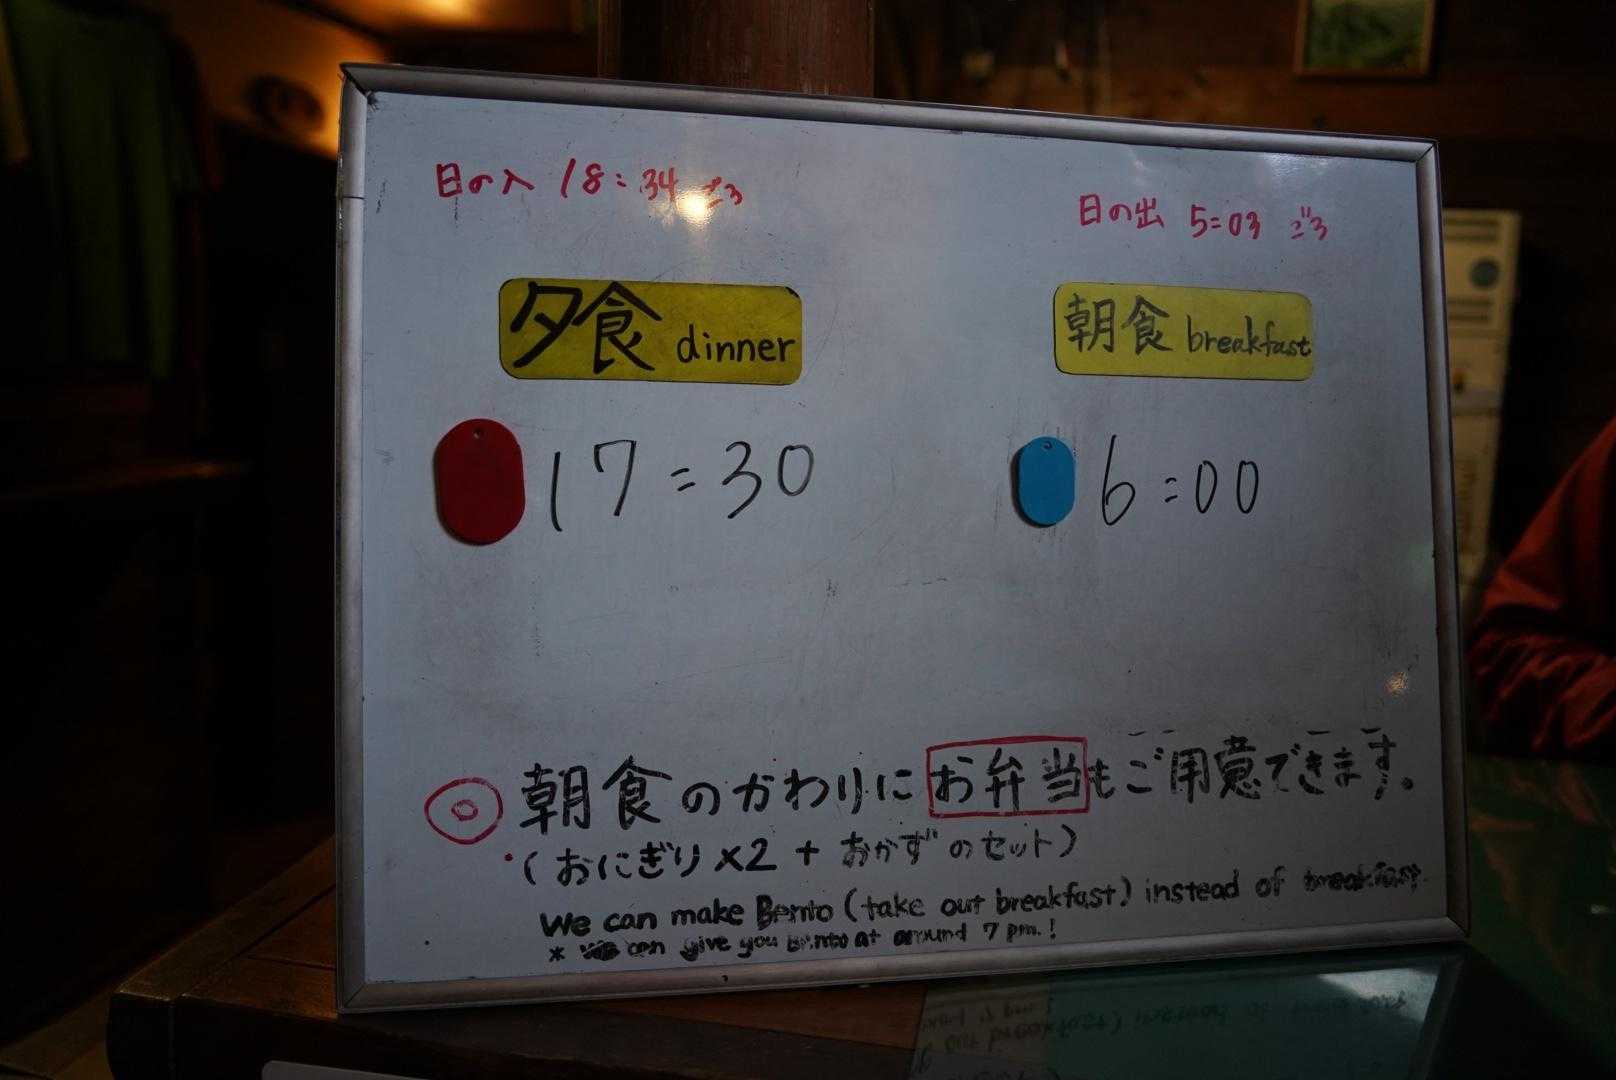 日の入 18:34 ごろ
日の出 5:03 ごろ
夕食 dinner
朝食 breakfast
17:30
6:00
◎ 朝食のかわりにお弁当もご用意できます。
(おにぎり×2 + おかずのセット)
We can make Bento (take out breakfast) instead of breakfast.
* We can give you Bento at around 7 pm.!